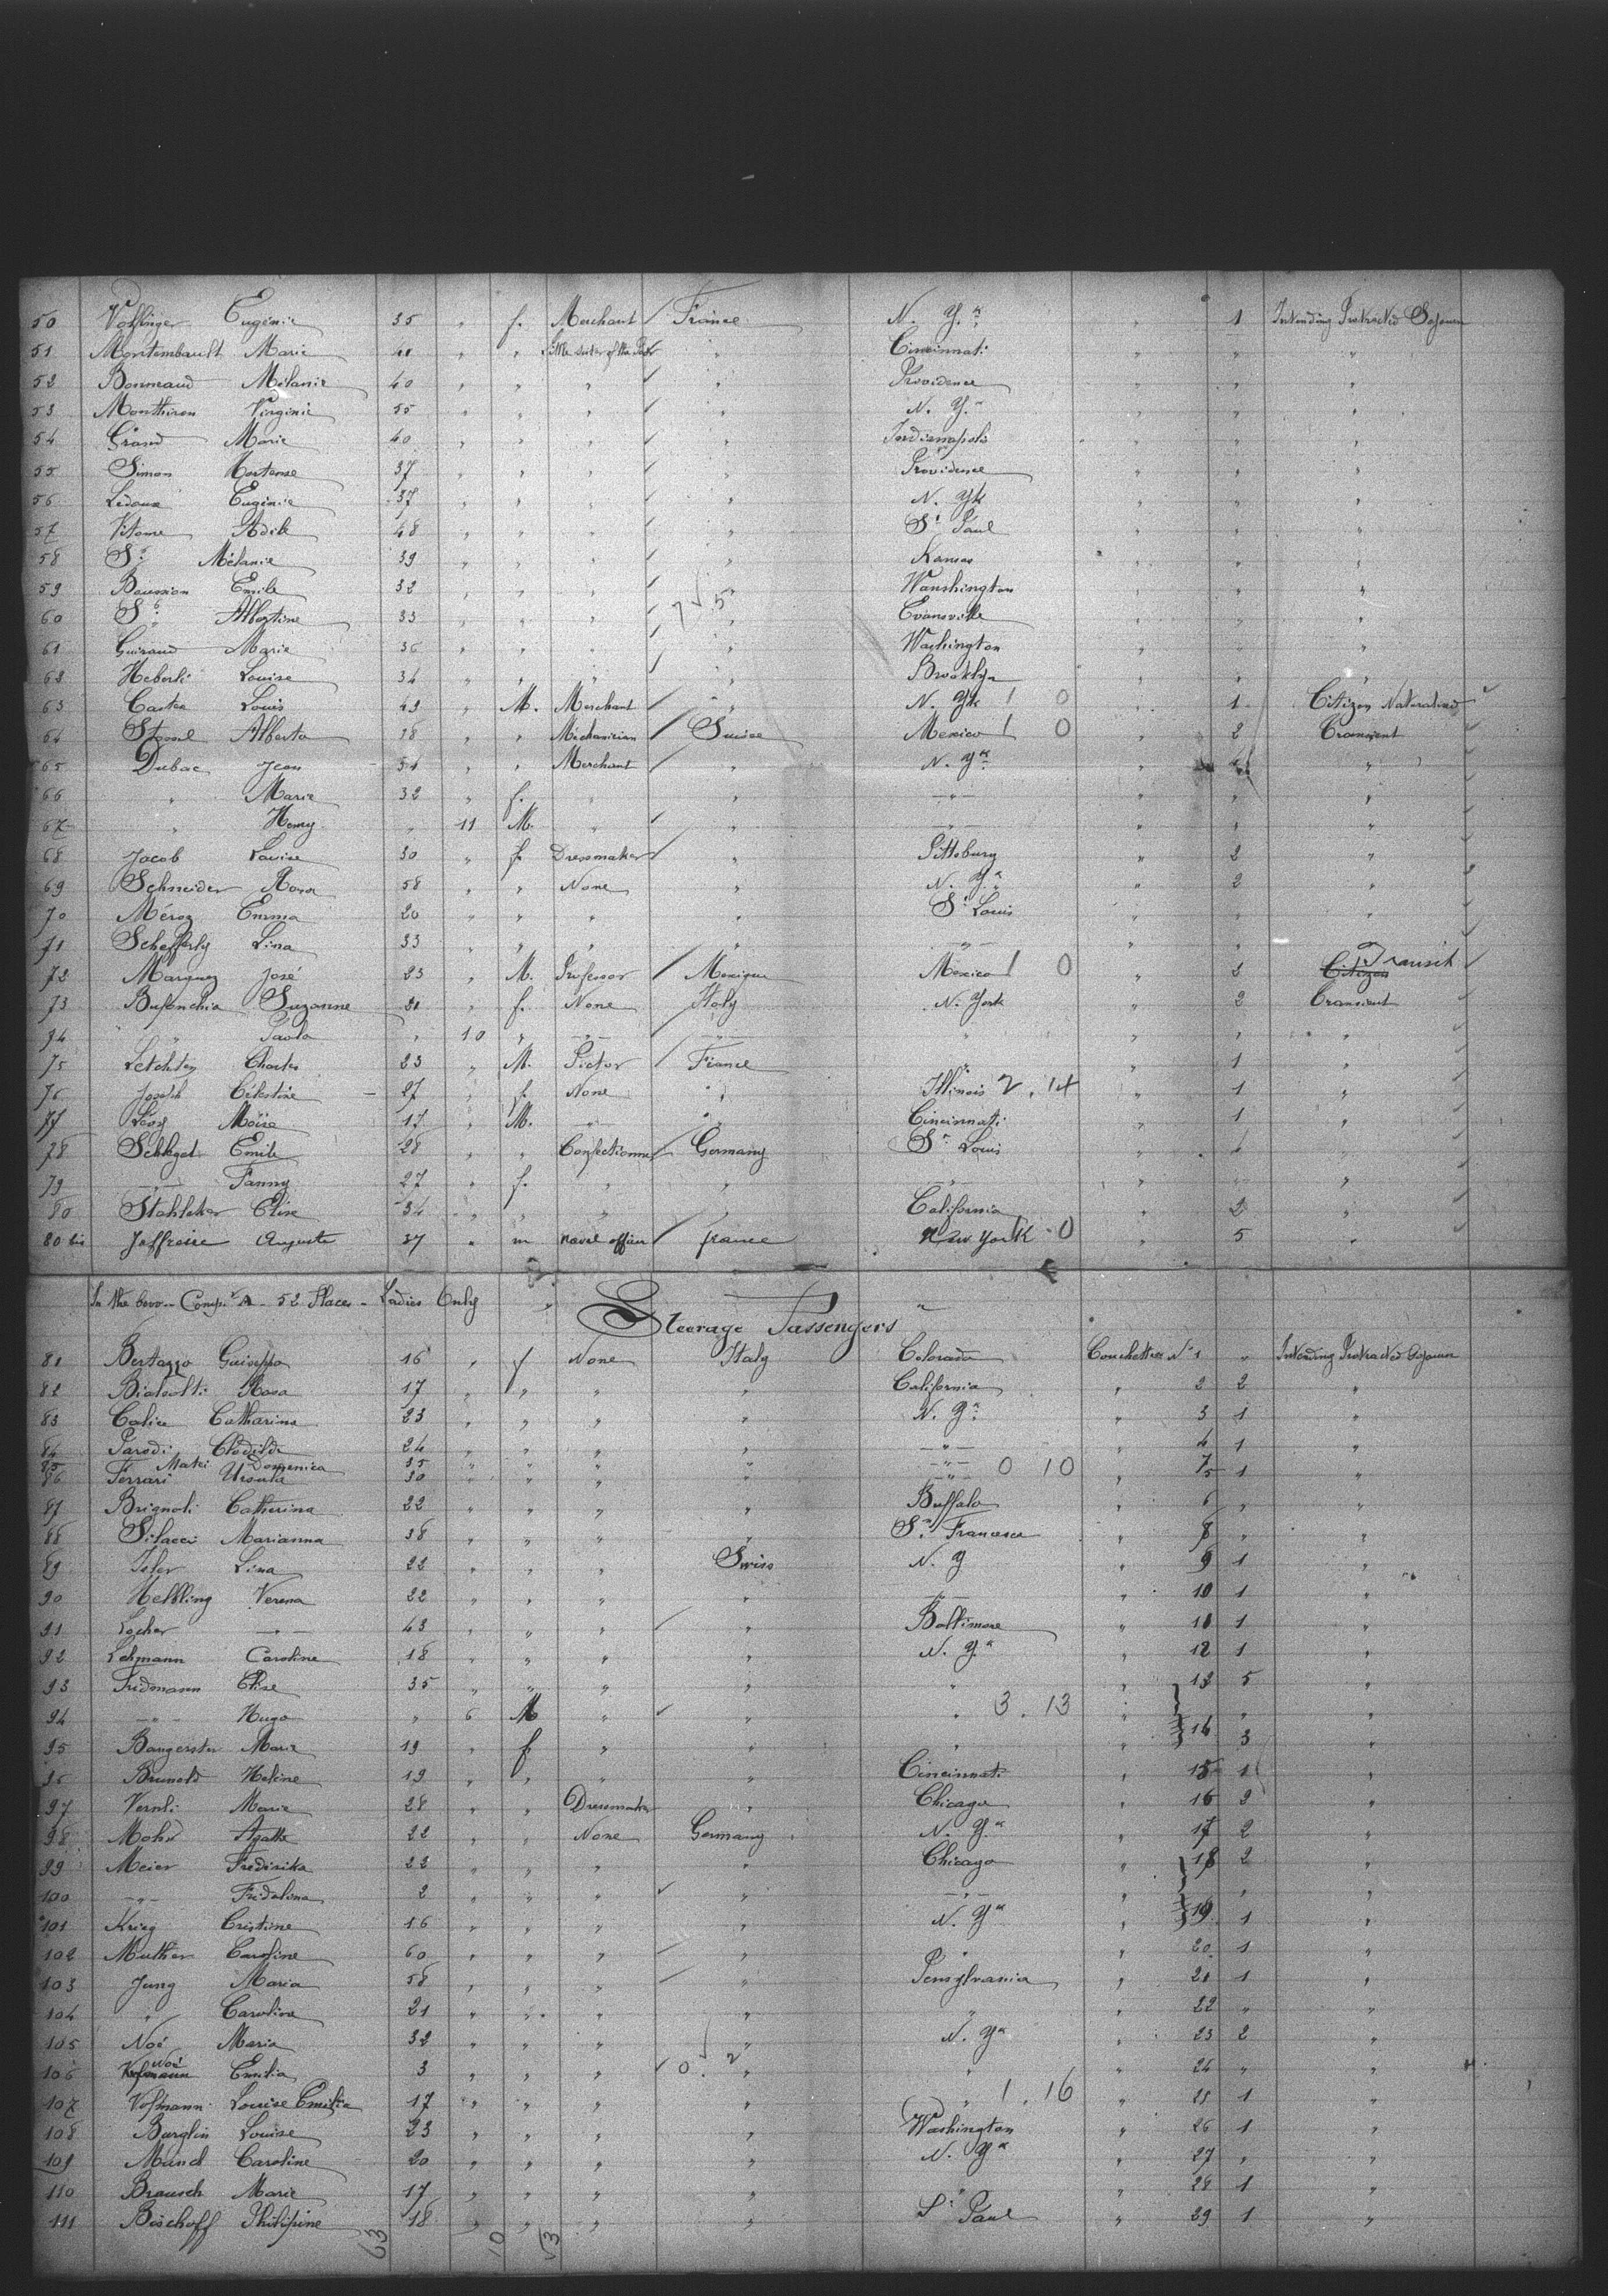 50 Volfinger Eugénie 35 " f. Merchant France N. Yk " 1 Intending Protracted Sojourn
51 Montembault Marie 41 " " Little sister of the Poor " Cincinnati " " "
52 Bonneaud Mélanie 40 " " " " Providence " " "
53 Monthiron Virginie 55 " " " " N. Y. " " "
54 Grand Marie 40 " " " " Indianapolis " " "
55 Simon Hortense 37 " " " " Providence " " "
56 Ledoux Eugénie 37 " " " " N. Yk " " "
57 Vitome Adile 48 " " " " St Paul " " "
58 St Mélanie 39 " " " " Kansas " " "
59 Baussion Emile 32 " " " " Wanshington " " "
60 St Albertine 33 " " " 7 5 " Evansville " " "
61 Guiraud Marie 36 " " " " Washington " " "
62 Heberli Louise 34 " " " " Brooklyn " " "
63 Castea Louis 49 " M. Merchant " N. Yk 1 0 " 1 Citizen Naturalised
64 Stamel Alberto 18 " " Mechanician Suisse Mexico 1 0 " 2 Transient
65 Dubac Jean 34 " " Merchant " N. Yk " "
66 " Marie 32 " f. " " —"— " " "
67 " Henry " 11 M. " " —"— " " "
68 Jacob Louise 30 " f. Dressmaker " Pittsburg " 2 "
69 Schneider Rosa 58 " " None " N. Yk " 2 "
70 Méroz Emma 20 " " " " St Louis " " "
71 Schefferly Lina 33 " " " " —"— " " "
72 Marquez José 23 " M. Professor Mexique Mexico 1 0 " 2 Citizen Transit
73 Bufonchia Suzanne 31 " f. None Italy N. York " 2 Transient
74 " Paola " 10 " —"— —"— " " " "
75 Letchtey Charles 23 " M. Pictor France " " 1 "
76 Joseph Célestine 27 " f. None " Illinois 2. 14 " 1 "
77 Levy Moïse 17 " M. —"— " Cincinnati " 1 "
78 Schlegel Emile 28 " " Confectionner Germany St Louis " "
79 —"— Fanny 27 " f. " " —"— " " "
80 Stahleker Elise 34 " " " " California " 2 "
80 bis Jaffreire Auguste 37 " m naval officer france New York - 0 " 5 "
In the bow - Compt A - 52 Places - Ladies Only
Steerage Passengers
81 Bertazzo Guiseppa 16 " f None Italy Colorado Couchettes No 1 " Intending Protracted Sojourn
82 Rosa 17 " " " " California " 2 2 "
83 Calice Catharina 23 " " " " N. Yk " 3 1 "
84 Parodi Clodilda 24 " " " " —"— " 4 1 "
85 Matei Domenica 35 " " " " —"— 0 10 7
86 Ferrari Ursula 30 " " " " —"— " 5 1 "
87 Brignoli Catherina 22 " " " " Buffalo " 6 " "
88 Silacci Marianna 38 " " " " Sn Francisco " 8 " "
89 Isler Lina 22 " " " Swiss N. Y " 9 1 "
90 Helbling Verena 22 " " " " —"— " 10 1 "
91 Locher —"— 43 " " " " Baltimore " 11 1 "
92 Lehmann Caroline 18 " " " " N. Yk " 12 1 "
93 Fridmann Elise 35 " " " " " " 13 5 "
94 —"— Hugo " 6 M " " " 3. 13 " " "
95 Bangerster Marie 19 " f " " " " 14 3 "
96 Brunold Heline 19 " " " " Cincinnati " 15 1 "
97 Vernli Marie 28 " " Dressmaker " Chicago " 16 2 "
98 Mohr Agatte 22 " " None Germany N. Yk " 17 2 "
99 Meier Frederika 22 " " " " Chicago " 18 2 "
100 —"— Fridolina 2 " " " " —"— " " "
101 Krieg Cristine 16 " " " " N. Yk " 19 1 "
102 Muther Caroline 60 " " " " " " 20 1 "
103 Jung Maria 58 " " " " Pensylvania " 21 1 "
104 " Carolina 21 " " " " " " 22 " "
105 Noé Maria 32 " " " " N. Yk " 23 2 "
106 Vofmann Noé Emilia 3 " " " 0. 2 " " " 24 " "
107 Vofmann Louise Emilia 17 " " " " " 1. 16 " 25 1 "
108 Burglin Louise 23 " " " " Washington " 26 1 "
109 Mund Caroline 20 " " " " N. Yk " 27 " "
110 Brausch Marie 17 " " " " " " 28 1 "
111 Bischoff Philipine 18 " " " " St Paul " 29 1 "
63 10 53